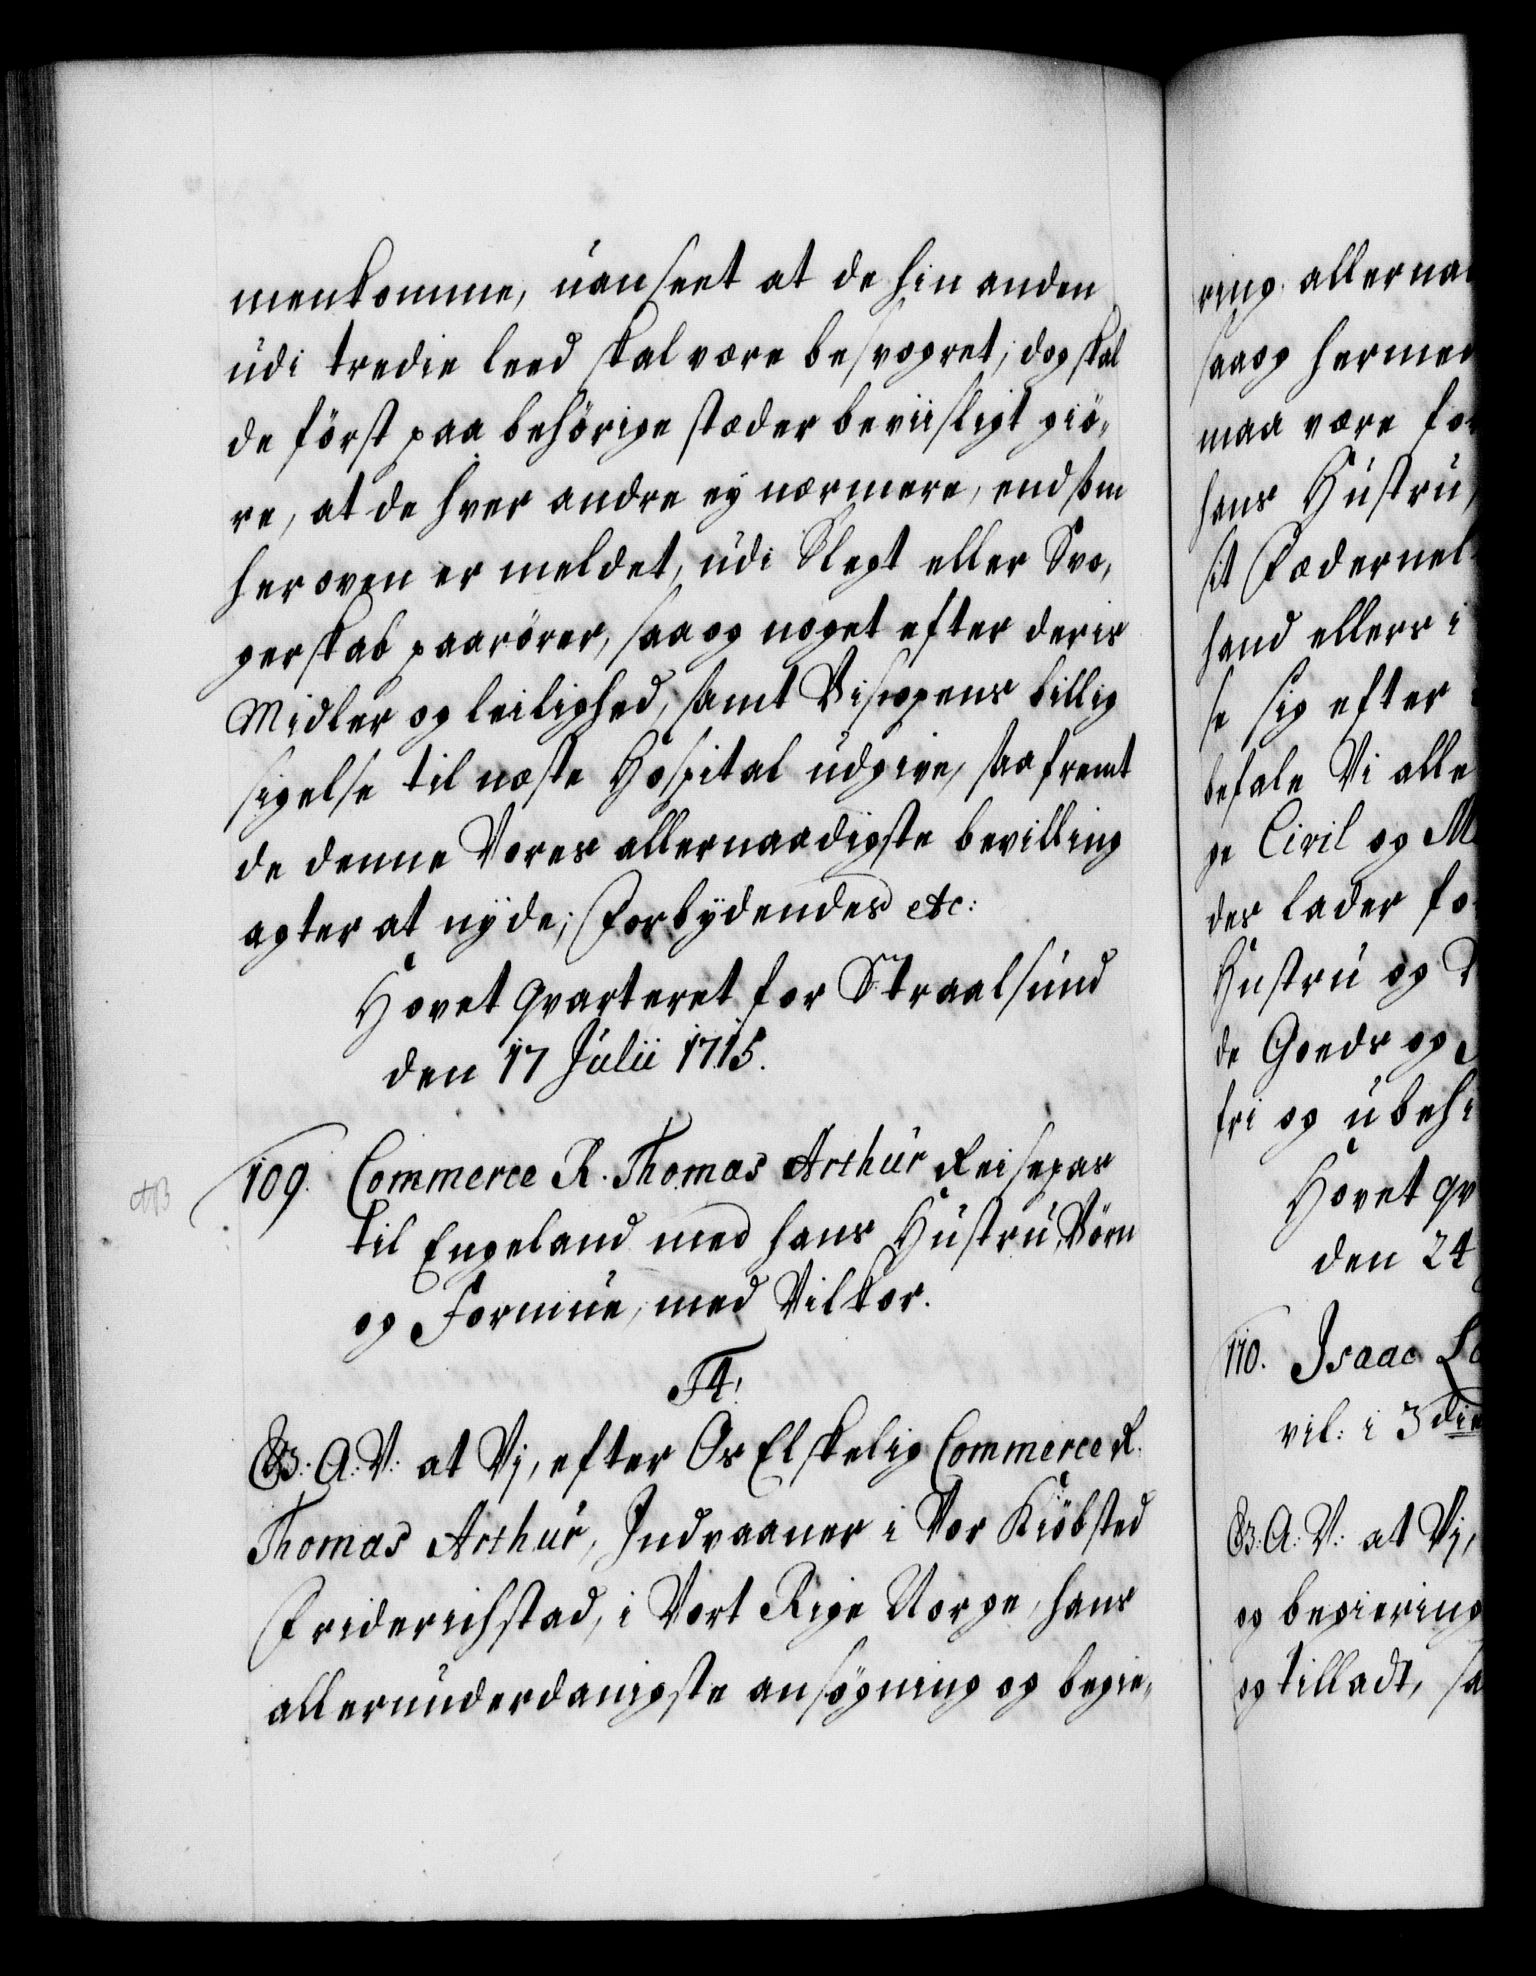 menkomme, uanseet at de hin anden
udi tredie leed skal være besvogret; dog skal
de först paa behörige stæder beviisligt giö-
re, at de hver andre ey nærmere, end som
her oven er meldet, udi Slegt eller Svo-
gerskab paarörer, saa og noget efter deris
Midler og leilighed, samt Biscopens billig
sigelse til næste Hospital udgive, saa fremt
de denne Vores allernaadigste bevilling
agter at nyde; Forbydendes etc:
Hovet qvarteret for Straalsund
den 17 Julii 1715.
109. Commerce R. Thomas Arthur Reisepas
AB
til Engeland med hans Hustru, Börn
og Formue, med Vilkor.
F4.
G: A: V: at Vi, efter Os Elskelig Commerce R.
Thomas Arthur, Indvaaner i Vor Kiöbsted
Friderichstad, i Vort Rige Norge, hans
allerunderdanigste ansögning og begie-
ring allerna
saa og hermed
maa være for
hans Hustru,
sit Fæderne
hand ellers i
se sig efter
befale Vi alle
ge Civil og M
des lader fo
Hustru og B
de Goeds og
fri og ubehi
Hovet qv
den 24
110. Isaac
vil: i 3die
G: A: V: at Vi,
og begiering
og tilladt, sa